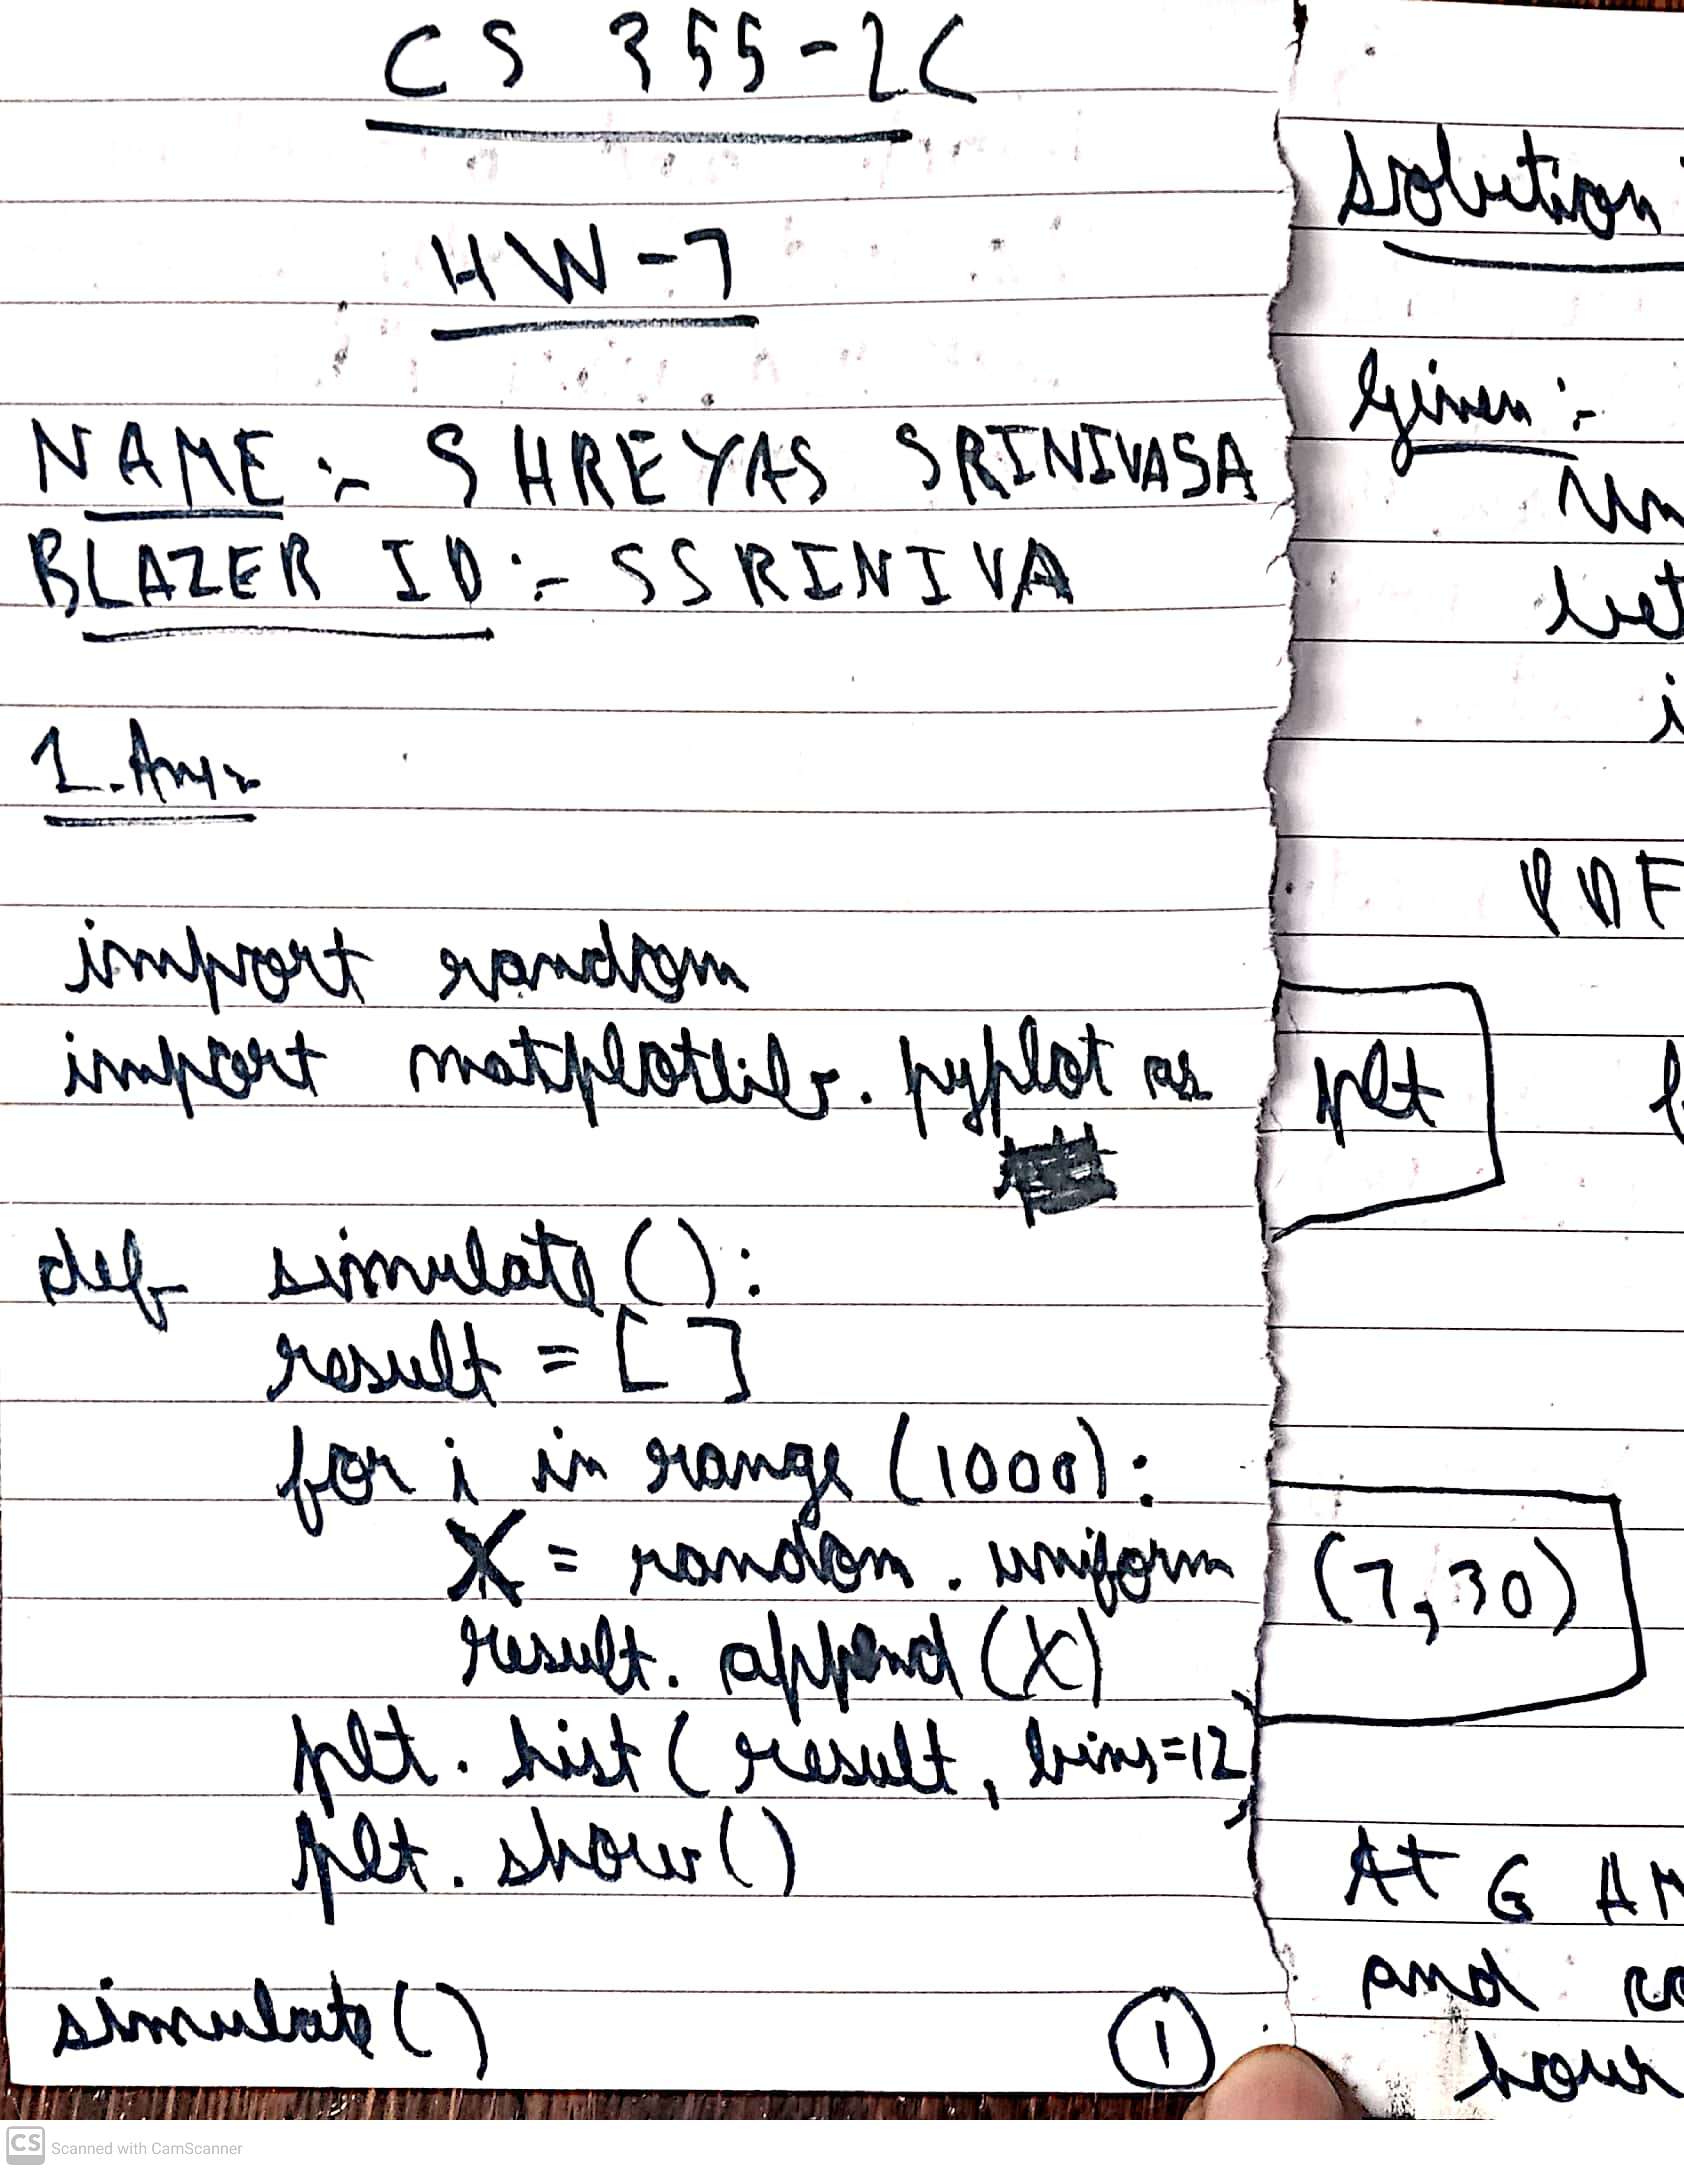 CS 355-2C
HW-7
NAME :- SHREYAS SRINIVASA
BLAZER ID :- SSRINIVA
1. Ans:-
import random
import matplotlib.pyplot as plt
def simulate():
result = []
for i in range (1000):
X = random.uniform (7,30)
result.append(X)
plt.hist(result, bins=12)
plt.show()
simulate()
1
Solution
Given :-
let
i
PDF
At 6 AM
and
hour
CS Scanned with CamScanner